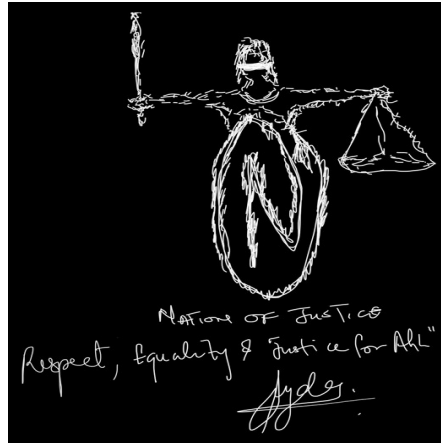 N
NATION OF JUSTICE
Respect, Equality & Justice for ALL"